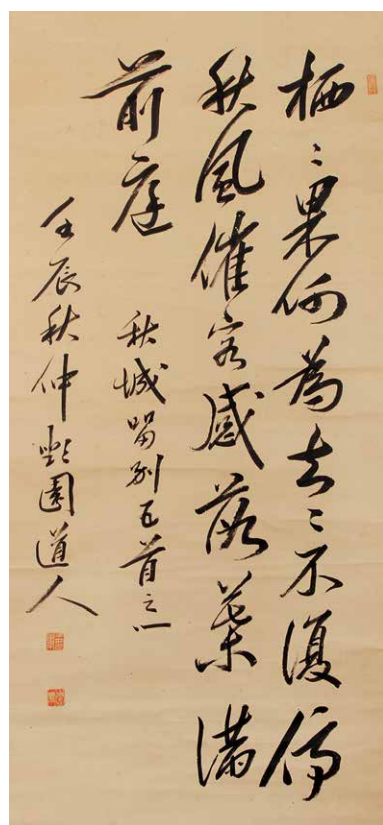 栖〻果何為去〻不復停
秋風催客感落葉満
前庭
秋城留別五首之一
壬辰秋仲 園道人